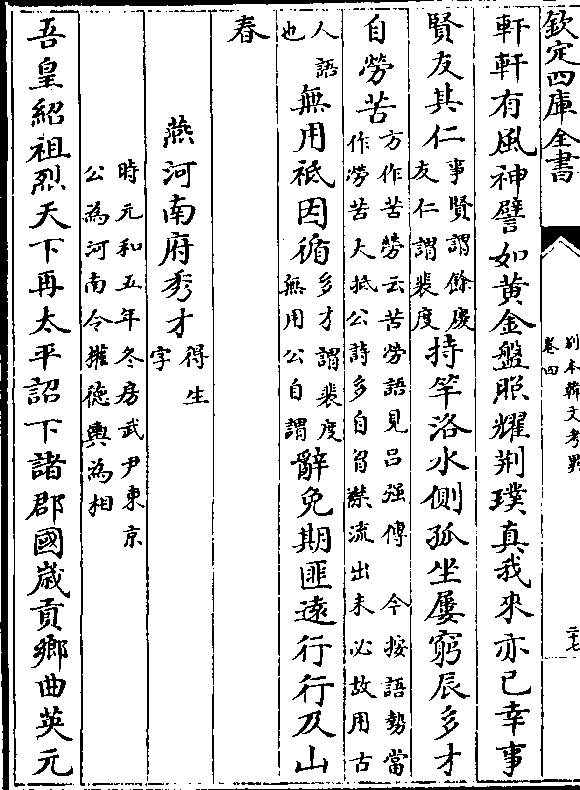 欽定四庫全書
别本韓文考異
卷四
二十七
軒軒有風神譬如黄金盤照耀荆璞真我來亦已幸事
賢友其仁事賢謂餘慶友仁謂裴度持竿洛水側孤坐屢窮辰多才
自勞苦方作苦勞云苦勞語見吕强傳 今按語勢當作勞苦大抵公詩多自胷襟流出未必故用古
人語也無用祗因循多才謂裴度無用公自謂辭免期匪遠行行及山
春
燕河南府秀才得生字
時元和五年冬房武尹東京
公為河南令權徳輿為相
吾皇紹祖烈天下再太平詔下諸郡國嵗貢鄉曲英元